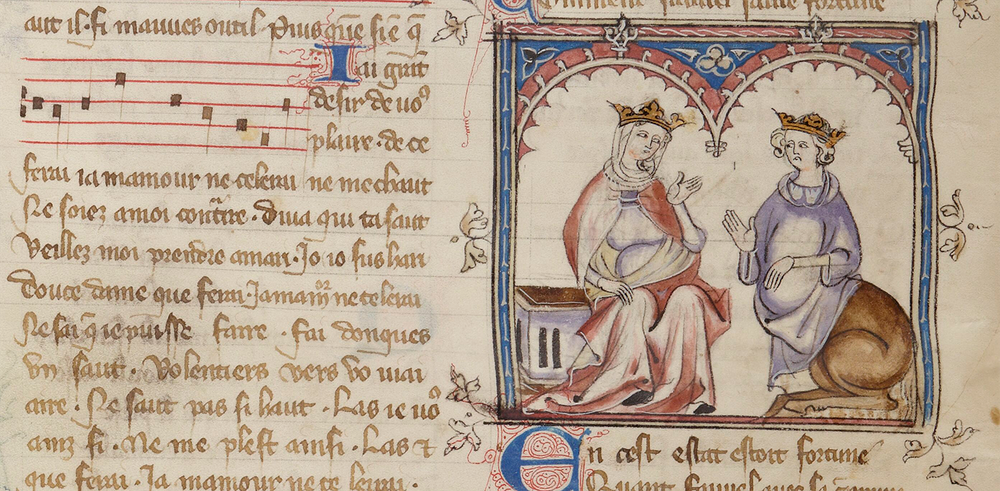 aut il. si mauues outil. Puisque sie q̃
Iai grãt
desir de uoꝰ
plaire. de ce
ferai ia mamour ne celerai ne me chaut
Ne soiez amoi contᵃire. diua qui ta saut
Veillez moi prendre amari. Io io sus hari
douce dame que ferai. Jamamᷣ ne celerai
Ne sai q̃ ie puisse faire. fai donques
vn saut. Volentiers vers vo uiai
aire. Ne saut pas si haut. Las ie uoꝰ
aing si. Ne me plest ainsi. Las ⁊
que ferai. Ja mamour ne te lerrai.
fortune
En cest estat estoit fortune
Quant